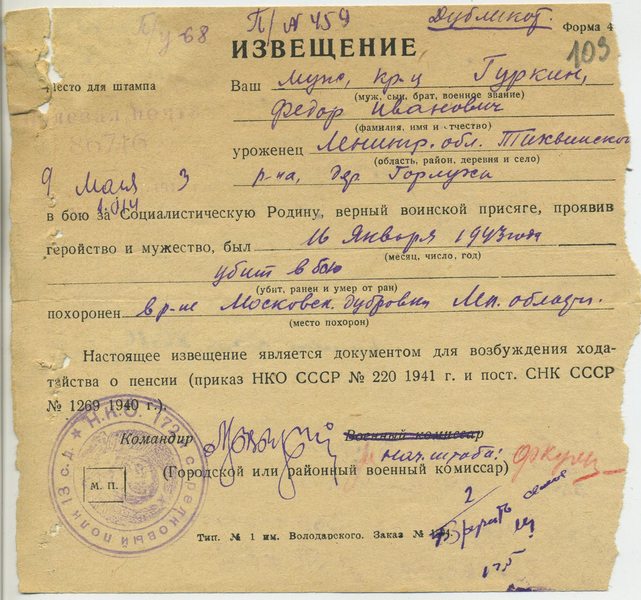 П/п № 459
Дубликат.
Форма 4
б/у 68
103
ИЗВЕЩЕНИЕ
Место для штампа
Ваш муж, кр-ц Гуркин,
(муж, сын, брат, военное звание)
Федор Иванович
(фамилия, имя и отчество)
86746
уроженец Ленингр. обл. Тихвинского
(область, район, деревня и село)
9 Мая 3
р-на, дер Горлужи
в бою за Социалистическую Родину, верный воинской присяге, проявив
геройство и мужество, был 16 Января 1943 года
(месяц, число, год)
убит в бою
(убит, ранен и умер от ран)
похоронен в р-не Московск. дубровки Лен. области.
(место похорон)
Настоящее извещение является документом для возбуждения хода-
тайства о пенсии (приказ НКО СССР № 220 1941 г. и пост. СНК СССР
№ 1269 1940 г.).
Н.К.О. 172 стрелковый полк 13 с.д.
М. П.
Командир
Военный комиссар
Нач. штаба:
(Городской или районный военный комиссар)
2
Тип. № 1 им. Володарского. Заказ №